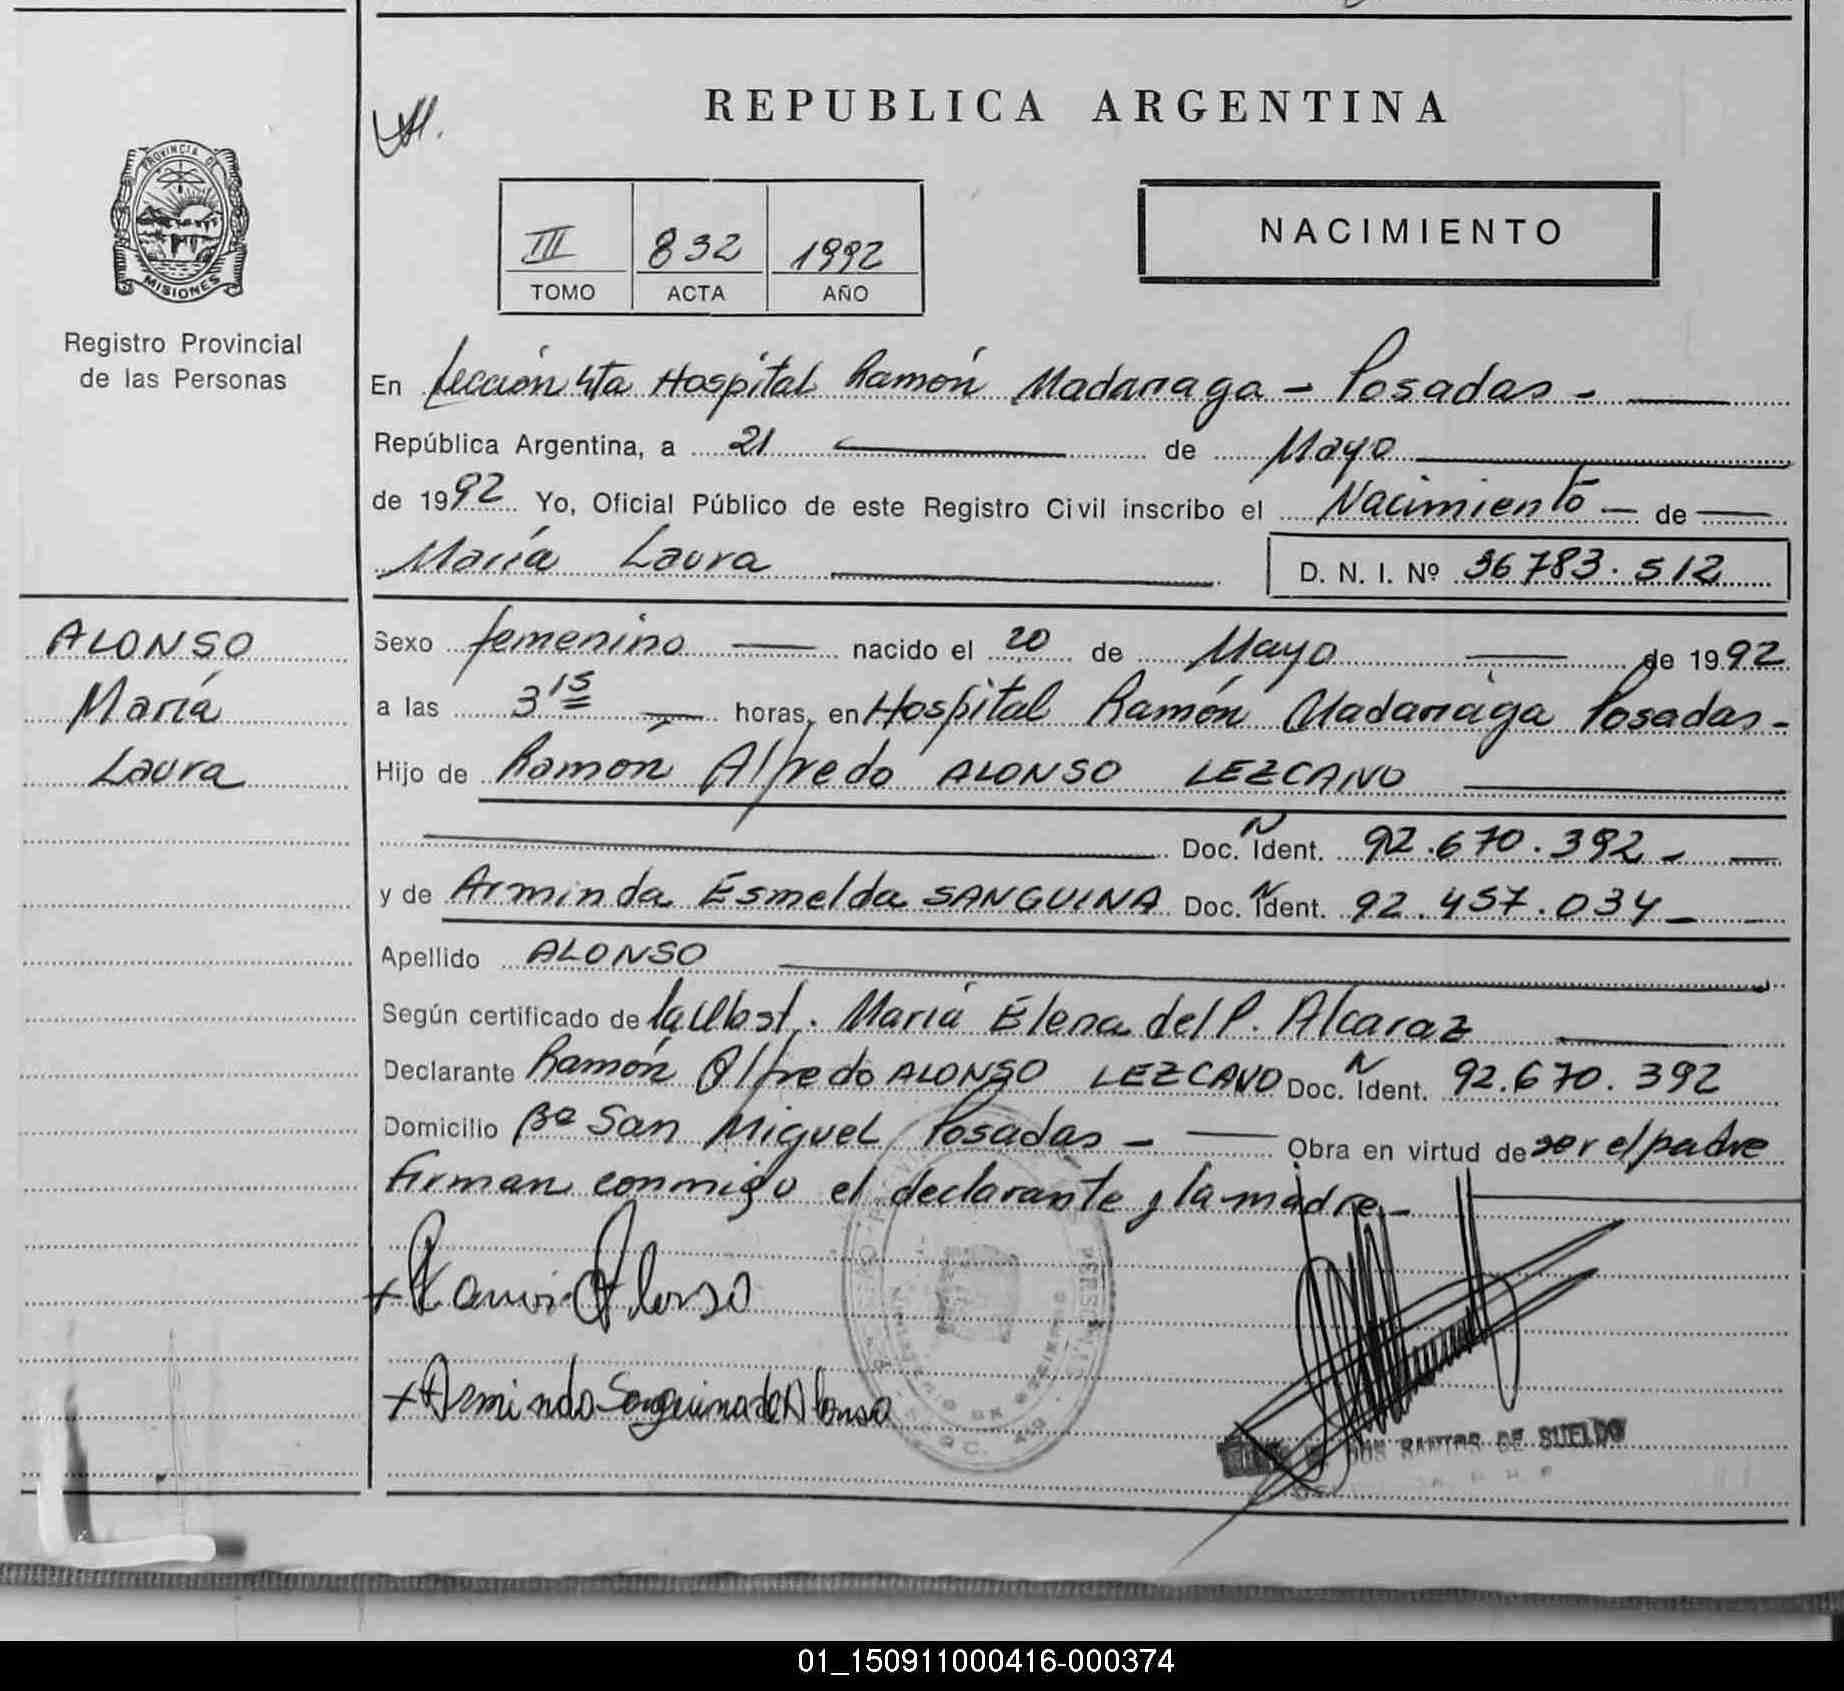 REPUBLICA ARGENTINA
PROVINCIA DE
MISIONES
Registro Provincial
de las Personas
NACIMIENTO
III 832 1992
TOMO ACTA AÑO
En Sección 4ta Hospital Ramón Madariaga - Posadas -
República Argentina, a 21 de Mayo
de 1992 Yo, Oficial Público de este Registro Civil inscribo el Nacimiento de
María Laura D. N. I. Nº 36783.512
ALONSO
María
Laura
Sexo femenino nacido el 20 de Mayo de 1992
a las 3 15 horas, en Hospital Ramón Madariaga Posadas-
Hijo de Ramón Alfredo ALONSO LEZCANO
Doc. Ident. N 92.670.392-
y de Arminda Esmelda SANGUINA Doc. Ident. N 92.457.034-
Apellido ALONSO
Según certificado de la Obst. María Elena del P. Alcaraz
Declarante Ramón Alfredo ALONSO LEZCANO Doc. Ident. N 92.670.392
Domicilio Bº San Miguel Posadas - Obra en virtud de ser el padre
Firman conmigo el declarante y la madre-
+ Ramon Alonso
+ Arminda Sanguina de Alonso
DOS SANTOS DE SUELDO
01_150911000416-000374